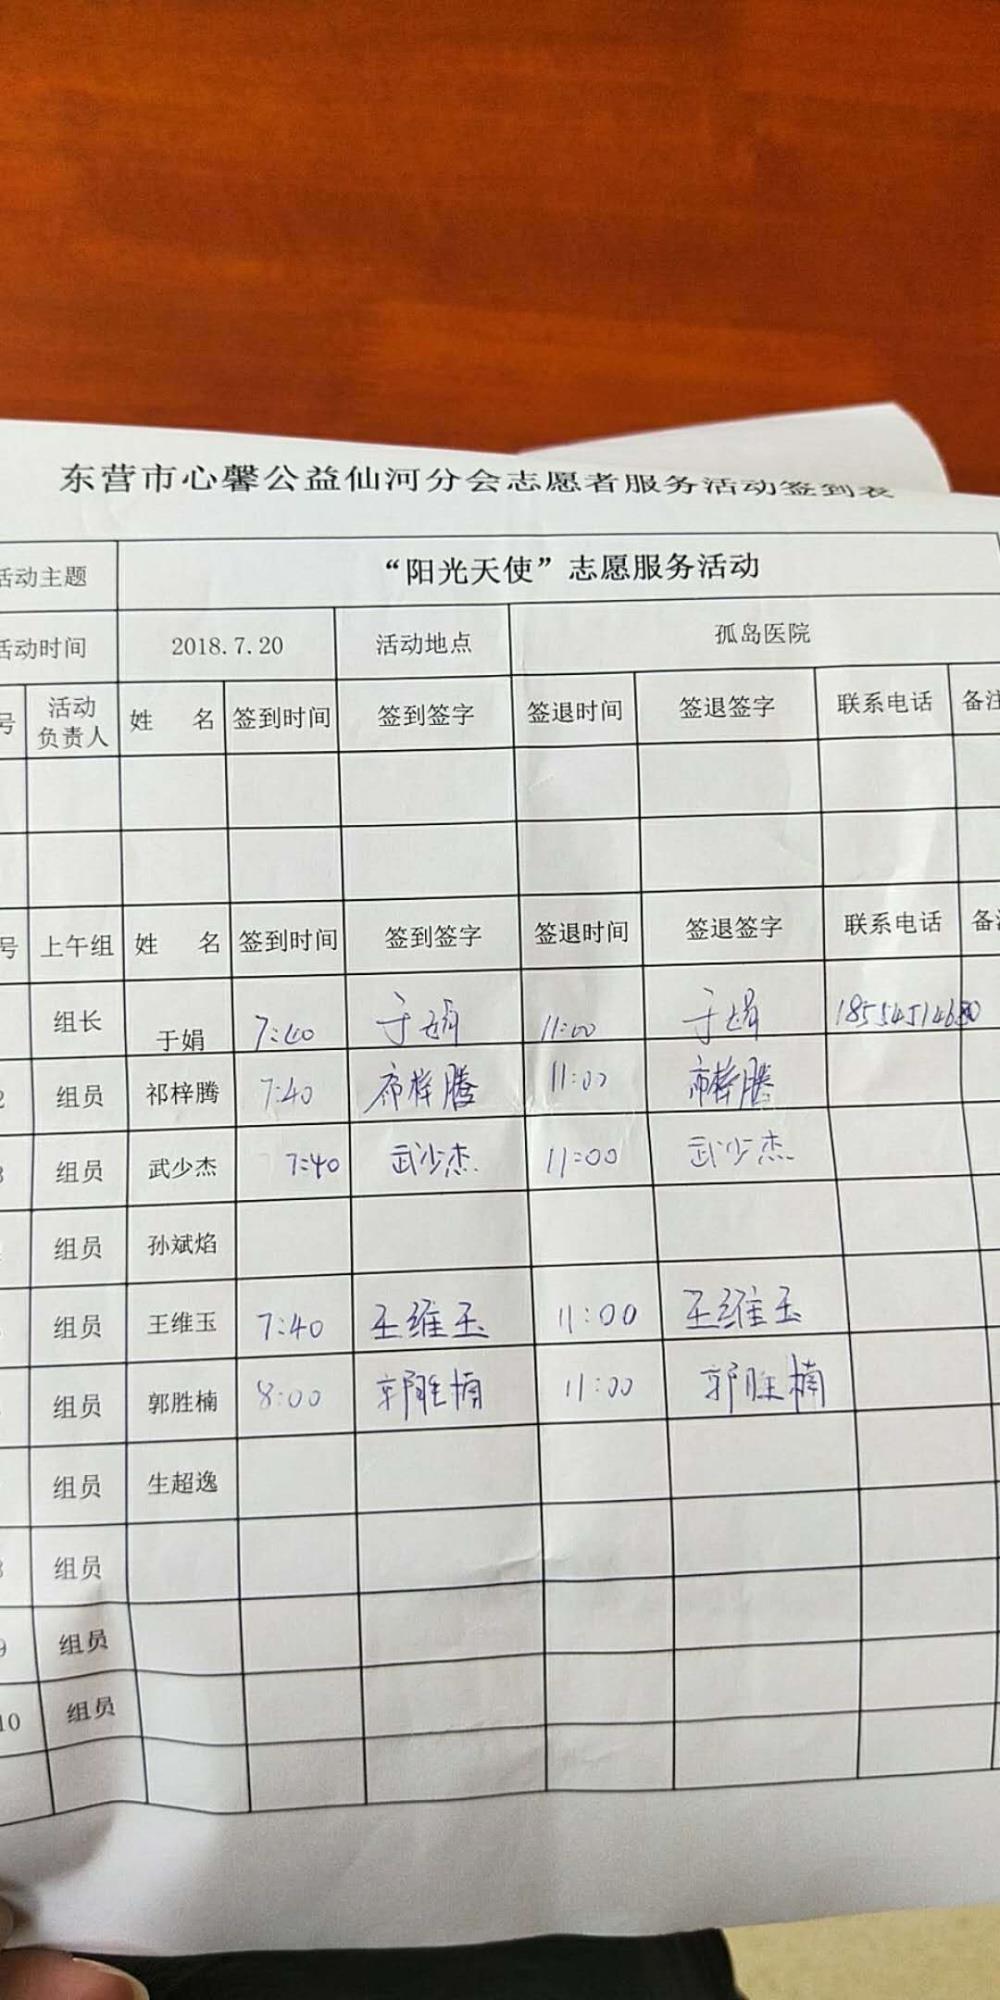 东营市心馨公益仙河分会志愿者服务活动签到表
活动主题 “阳光天使”志愿服务活动
活动时间 2018.7.20 活动地点 孤岛医院
号 活动负责人 姓 名 签到时间 签到签字 签退时间 签退签字 联系电话 备注
号 上午组 姓 名 签到时间 签到签字 签退时间 签退签字 联系电话 备
组长 于娟 7:40 于娟 11:00 于娟
2 组员 祁梓腾 7:40 祁梓腾 11:00 祁梓腾
3 组员 武少杰 7:40 武少杰 11:00 武少杰
组员 孙斌焰
组员 王维玉 7:40 王维玉 11:00 王维玉
组员 郭胜楠 8:00 郭胜楠 11:00 郭胜楠
组员 生超逸
8 组员
9 组员
10 组员